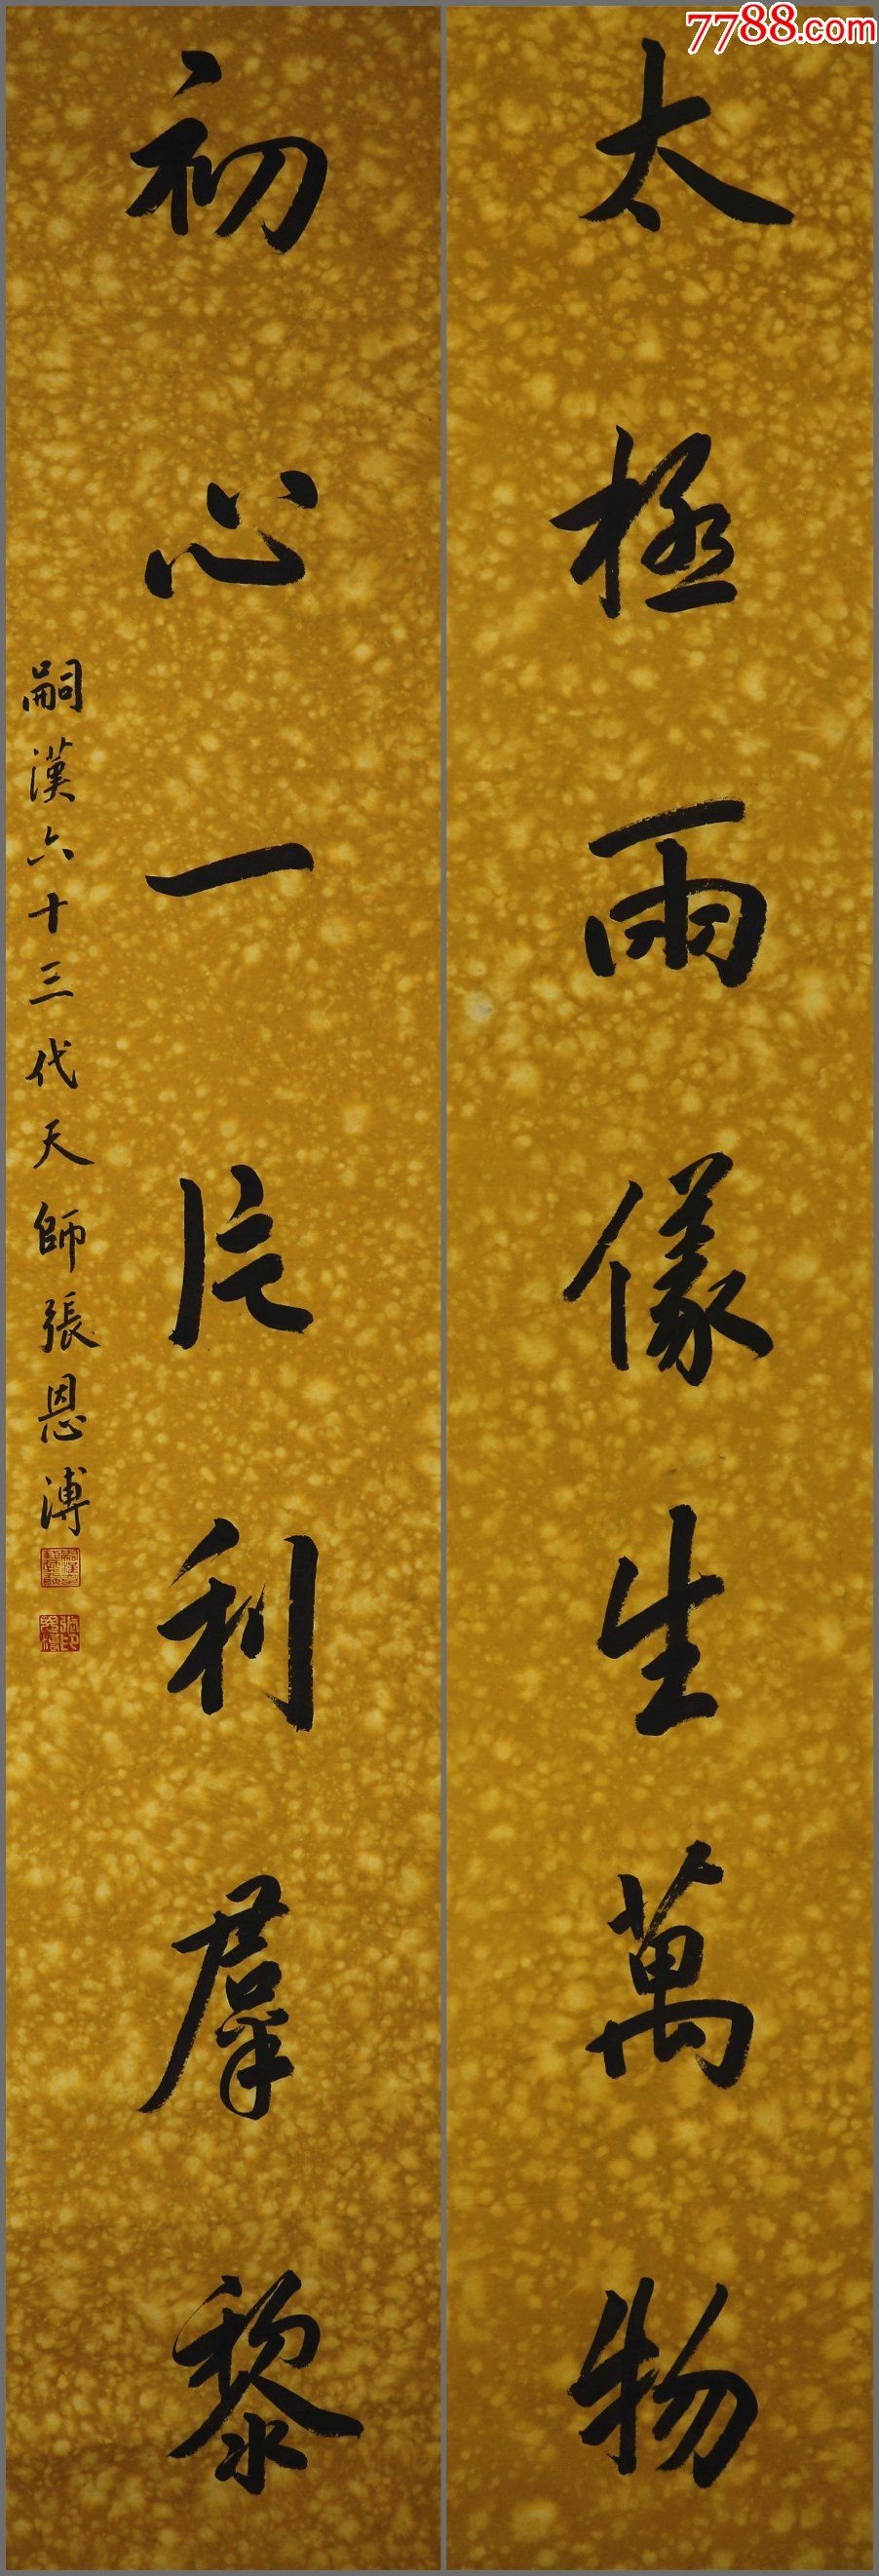 7788.com
太極兩儀生萬物
初心一片利羣黎
嗣漢六十三代天師張恩溥